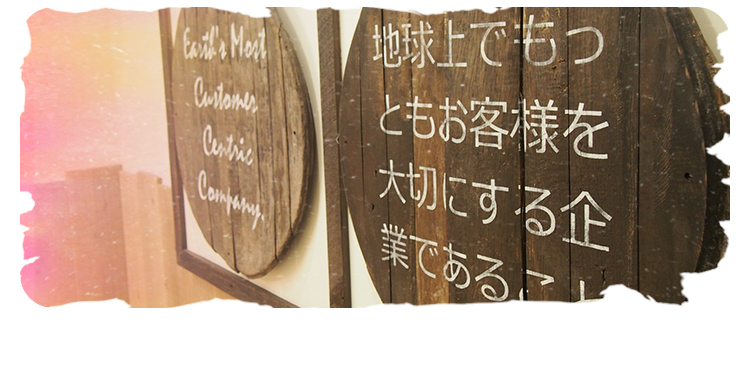 Earth's Most
Customer
Centric
Company.
地球上でもっ
ともお客様を
大切にする企
業であること